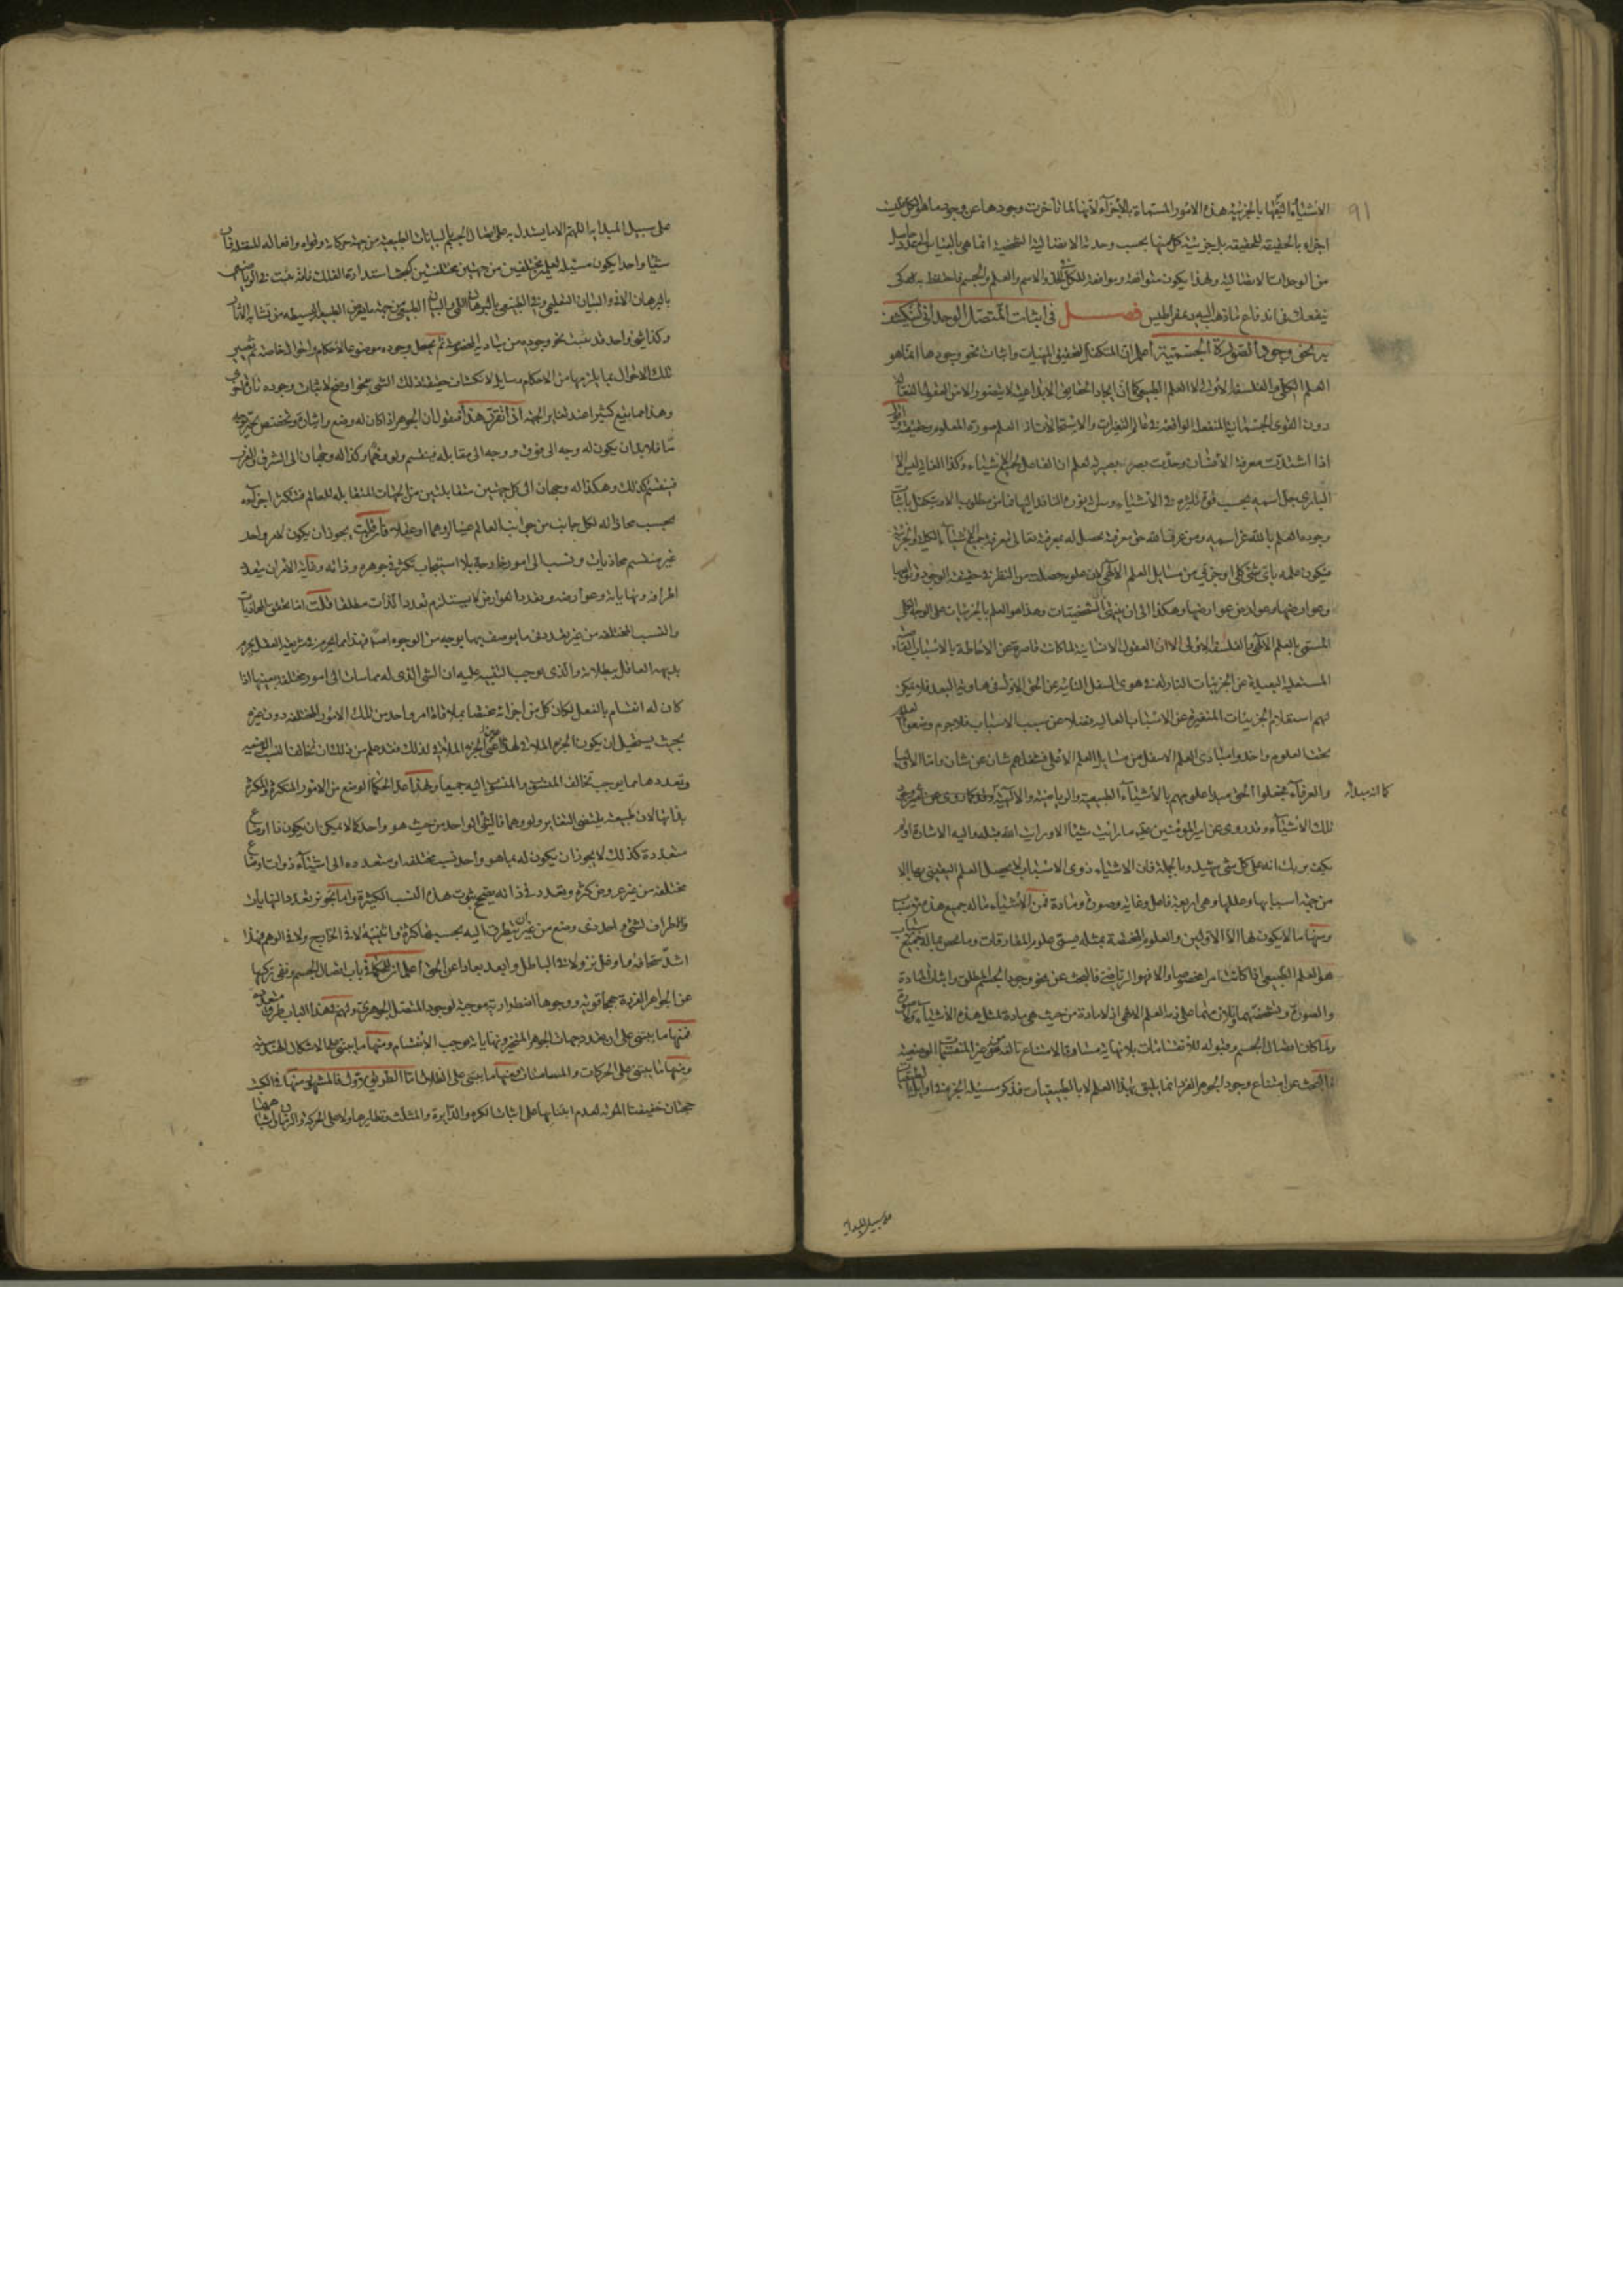 ٩١
الاشياء اليها بالجزئية هذه الامور المسماة بالاجزاء لانها لما تأخرت وجودها عن وجود ما هو الكل ليست
اجزاء بالحقيقة للحقيقة بل جزئية كل منها بحسب وحدته الاتصالية الشخصية انما هي بالقياس الى
من الوحدات الاتصالية ولهذا يكون متوافقة وموافقة للكل في الحد والاسم والعلم والجسم فاحتفظ به كى
ينفعك فى اندفاع ماذهب اليه ذيمقراطيس فصل فى اثبات المتصل الوحدانى لينكشف
به نحو وجود الصورة الجسمية اعلم ان المتكفل لتحقيق المهيات واثبات نحو وجودها انما هو
العلم الكلى والفلسفة الاولى لا العلم الطبيعى كما ان ايجاد الحقائق الابداعية لا يتصور الا من العقول
دون القوى الجسمانية المنفعلة الواقعة فى عالم التغيرات والاستحالات اذ العلم صورة المعلوم وحقيقته
اذا اشتدت معرفة الانسان وحدّت بصر بصيرته لعلم ان الفاعل لجميع الاشياء وكذا الغاية ليس الا
البارى جل اسمه بحسب قوة تأثيره فى الاشياء وسراية نوره النافذ اليها فما من مطلوب الا ويتكفل باثبات
وجوده العلم بالله عز اسمه ومن عرف الله حق معرفته يحصل له بمعرفته تعالى معرفة جميع الاشياء الكلية والجزئية
فيكون علمه باى شئ كلى او جزئى من مسائل العلم الالهى لان علومه حصلت من النظر فى حقيقة الوجود وتوابعها
وعوارضها وعوارض عوارضها وهكذا الى ان ينتهى الى الشخصيات وهذا هو العلم بالجزئيات على الوجه الكلى
المسمى بالعلم الالهى والفلسفة الاولى الا ان العقول الانسانية لما كانت قاصرة عن الاحاطة بالاسباب
المستعلية البعيدة عن الجزئيات النازلة فى هوى السفل النائية عن الحق الاول فى هاوية البعد فلا يمكن
لهم استعلام الجزئيات المتغيرة عن الاسباب العالية فضلا عن سبب الاسباب فلا جرم وضعوا
تحتها العلوم واخذوا مبادى العلم الاسفل من مسائل العلم الاعلى فشغلهم شان عن شان واما الاولياء
والعرفاء فجعلوا الحق مبدأ علومهم بالاشياء الطبيعية والرياضية والالهية
كما انه مبدأ
تلك الاشياء وقد روى عن امير المؤمنين ما رايت شيئا الا ورايت الله قبله واليه الاشارة اولم
يكف بربك انه على كل شئ شهيد وبالجملة فان الاشياء ذوى الاسباب لا يحصل العلم اليقينى بها الا
من جهة اسبابها وعللها وهى اربعة فاعل وغاية وصورة ومادة فمن الاشياء ما له جميع هذه
ومنها ما لا يكون لها الا الاولين والعلوم المختصة بمثله يسمى علوم المفارقات وما يختص بما له جميع
هو العلم الطبيعى اذا كانت امرا مخصوصا والا فهو الرياضى فالبحث عن نحو وجود الجسم المطلق واثبات المادة
والصورة وتشخصهما وتلازمهما على ذمة العلم الالهى اذ لا مادة من حيث هى مادة لمثل هذه الاشياء
ولما كان اتصال الجسم وقبوله للانقسامات بلا نهاية مساوقا لامتناع تألفه من المتحيزات الوضعية
فالبحث عن امتناع وجود الجوهر الفرد انما يليق بهذا العلم لا بالطبيعيات فذكر مسئلة الجزء فى اوائل
على سبيل المبدأ
على سبيل المبدئية اللهم الا ما يستدل به على اتصال الجسم بالبيانات الطبيعية من جهة حركاته وقواه وافعاله
شيئا واحدا يكون مسئلة لعلمين مختلفين من جهتين مختلفتين كبحث استدارة الفلك فانه يثبت فى الرياضى
بالبرهان الانى والبيان التعليمى وفى الطبيعى بالبرهان اللمى والبيان الطبيعى من جهة ما يقتضى الطبيعة البسيطة من تشابه
وكذا شئ واحد قد يثبت نحو وجوده من مبادئه المخصوصة ثم يجعل وجوده موضوعا لاحكام واحوال خاصة ثم تصير
تلك الاحوال بما يلزمها من الاحكام وسايل لانكشاف حقيقة ذلك الشئ بنحو اوضح لاثبات وجوده ثانيا
وهذا مما يقع كثيرا عند تغاير الجهة اذا تقرر هذا فنقول ان الجوهر اذا كان له وضع واشارة وتخصص بحيز
مّا فلا بد ان يكون له وجه الى فوق ووجه الى مقابله فينقسم ولو وهما وكذا له وجهان الى الشرق والغرب
فينقسم كذلك وهكذا له وجهان الى كل جهتين متقابلتين من الجهات المتقابلة للعالم فتتكثر اجزاؤه
بحسب محاذاته لكل جانب من جوانب العالم عينا او وهما او عقلا فان قلت يجوز ان يكون لامر واحد
غير منقسم محاذيات ونسب الى امور خارجة بلا استيجاب تكثر فى جوهره وذاته وغاية الامر ان يتعدد
اطرافه ونهاياته وعوارضه وتعدد العوارض لا يستلزم تعدد الذات مطلقا قلت انما تختلف المحاذيات
والنسب المختلفة من غير تعدد فى ما يوصف بها بوجه من الوجوه اصلا فهذا مما يحرم فى شريعة العقل
بديهة العاقل ببطلانه والذى يوجب التنبيه عليه ان الشئ الذى له مماسات الى امور مختلفة بعينها اذا
كان له انقسام بالفعل لكان كل من اجزائه مختصا بملاقاة امر واحد من تلك الامور المختلفة دون غيره
بحيث يستحيل ان يكون الجزء الملاقى لهذا عين الجزء الملاقى لذلك فقد علم من ذلك ان تخالف النسب الوضعية
وتعددها مما يوجب تخالف المنتسب والمنتسب اليه جميعا ولهذا عد الحكماء الوضع من الامور المتكثرة المكثرة
بذاتها لان طبيعته يقتضى التغاير ولو وهما فالشئ الواحد من حيث هو واحد كما لا يمكن ان يكون ذا اوضاع
متعددة كذلك لا يجوز ان يكون له بما هو واحد نسب مختلفة او متعددة الى اشياء ذوات اوضاع
مختلفة من غير عروض كثرة وتعدد فى ذاته يصحح ثبوت هذه النسب الكثيرة واما تجويز تعدد النهايات
والاطراف لشئ واحد ذى وضع من غير ان يتطرق اليه بحسبها كثرة واثنينية لا فى الخارج ولا فى الوهم فهذا
اشد سخافة واوغل نزولا فى الباطل وابعد بعادا عن الحق اعلم ان للحكماء فى باب اتصال الجسم ونفى تركبها
عن الجواهر الفردة حججا قوية ووجوها اضطرارية موجبة لوجود المتصل الجوهرى ولهم فى هذا الباب طرق متعددة
فمنها ما يبتنى على ان تعدد جهات الجوهر المتحيز ونهاياته يوجب الانقسام ومنها ما يبتنى على الاشكال الهندسية
ومنها ما يبتنى على الحركات والمسامتات ومنها ما يبتنى على الظلال اما الطريق الاول فالمشهور منها فى الكتب
حجتان خفيفتا المؤنة لعدم ابتنائها على اثبات الكرة والدايرة والمثلث ونظايرها ولا على الحركة والزمان